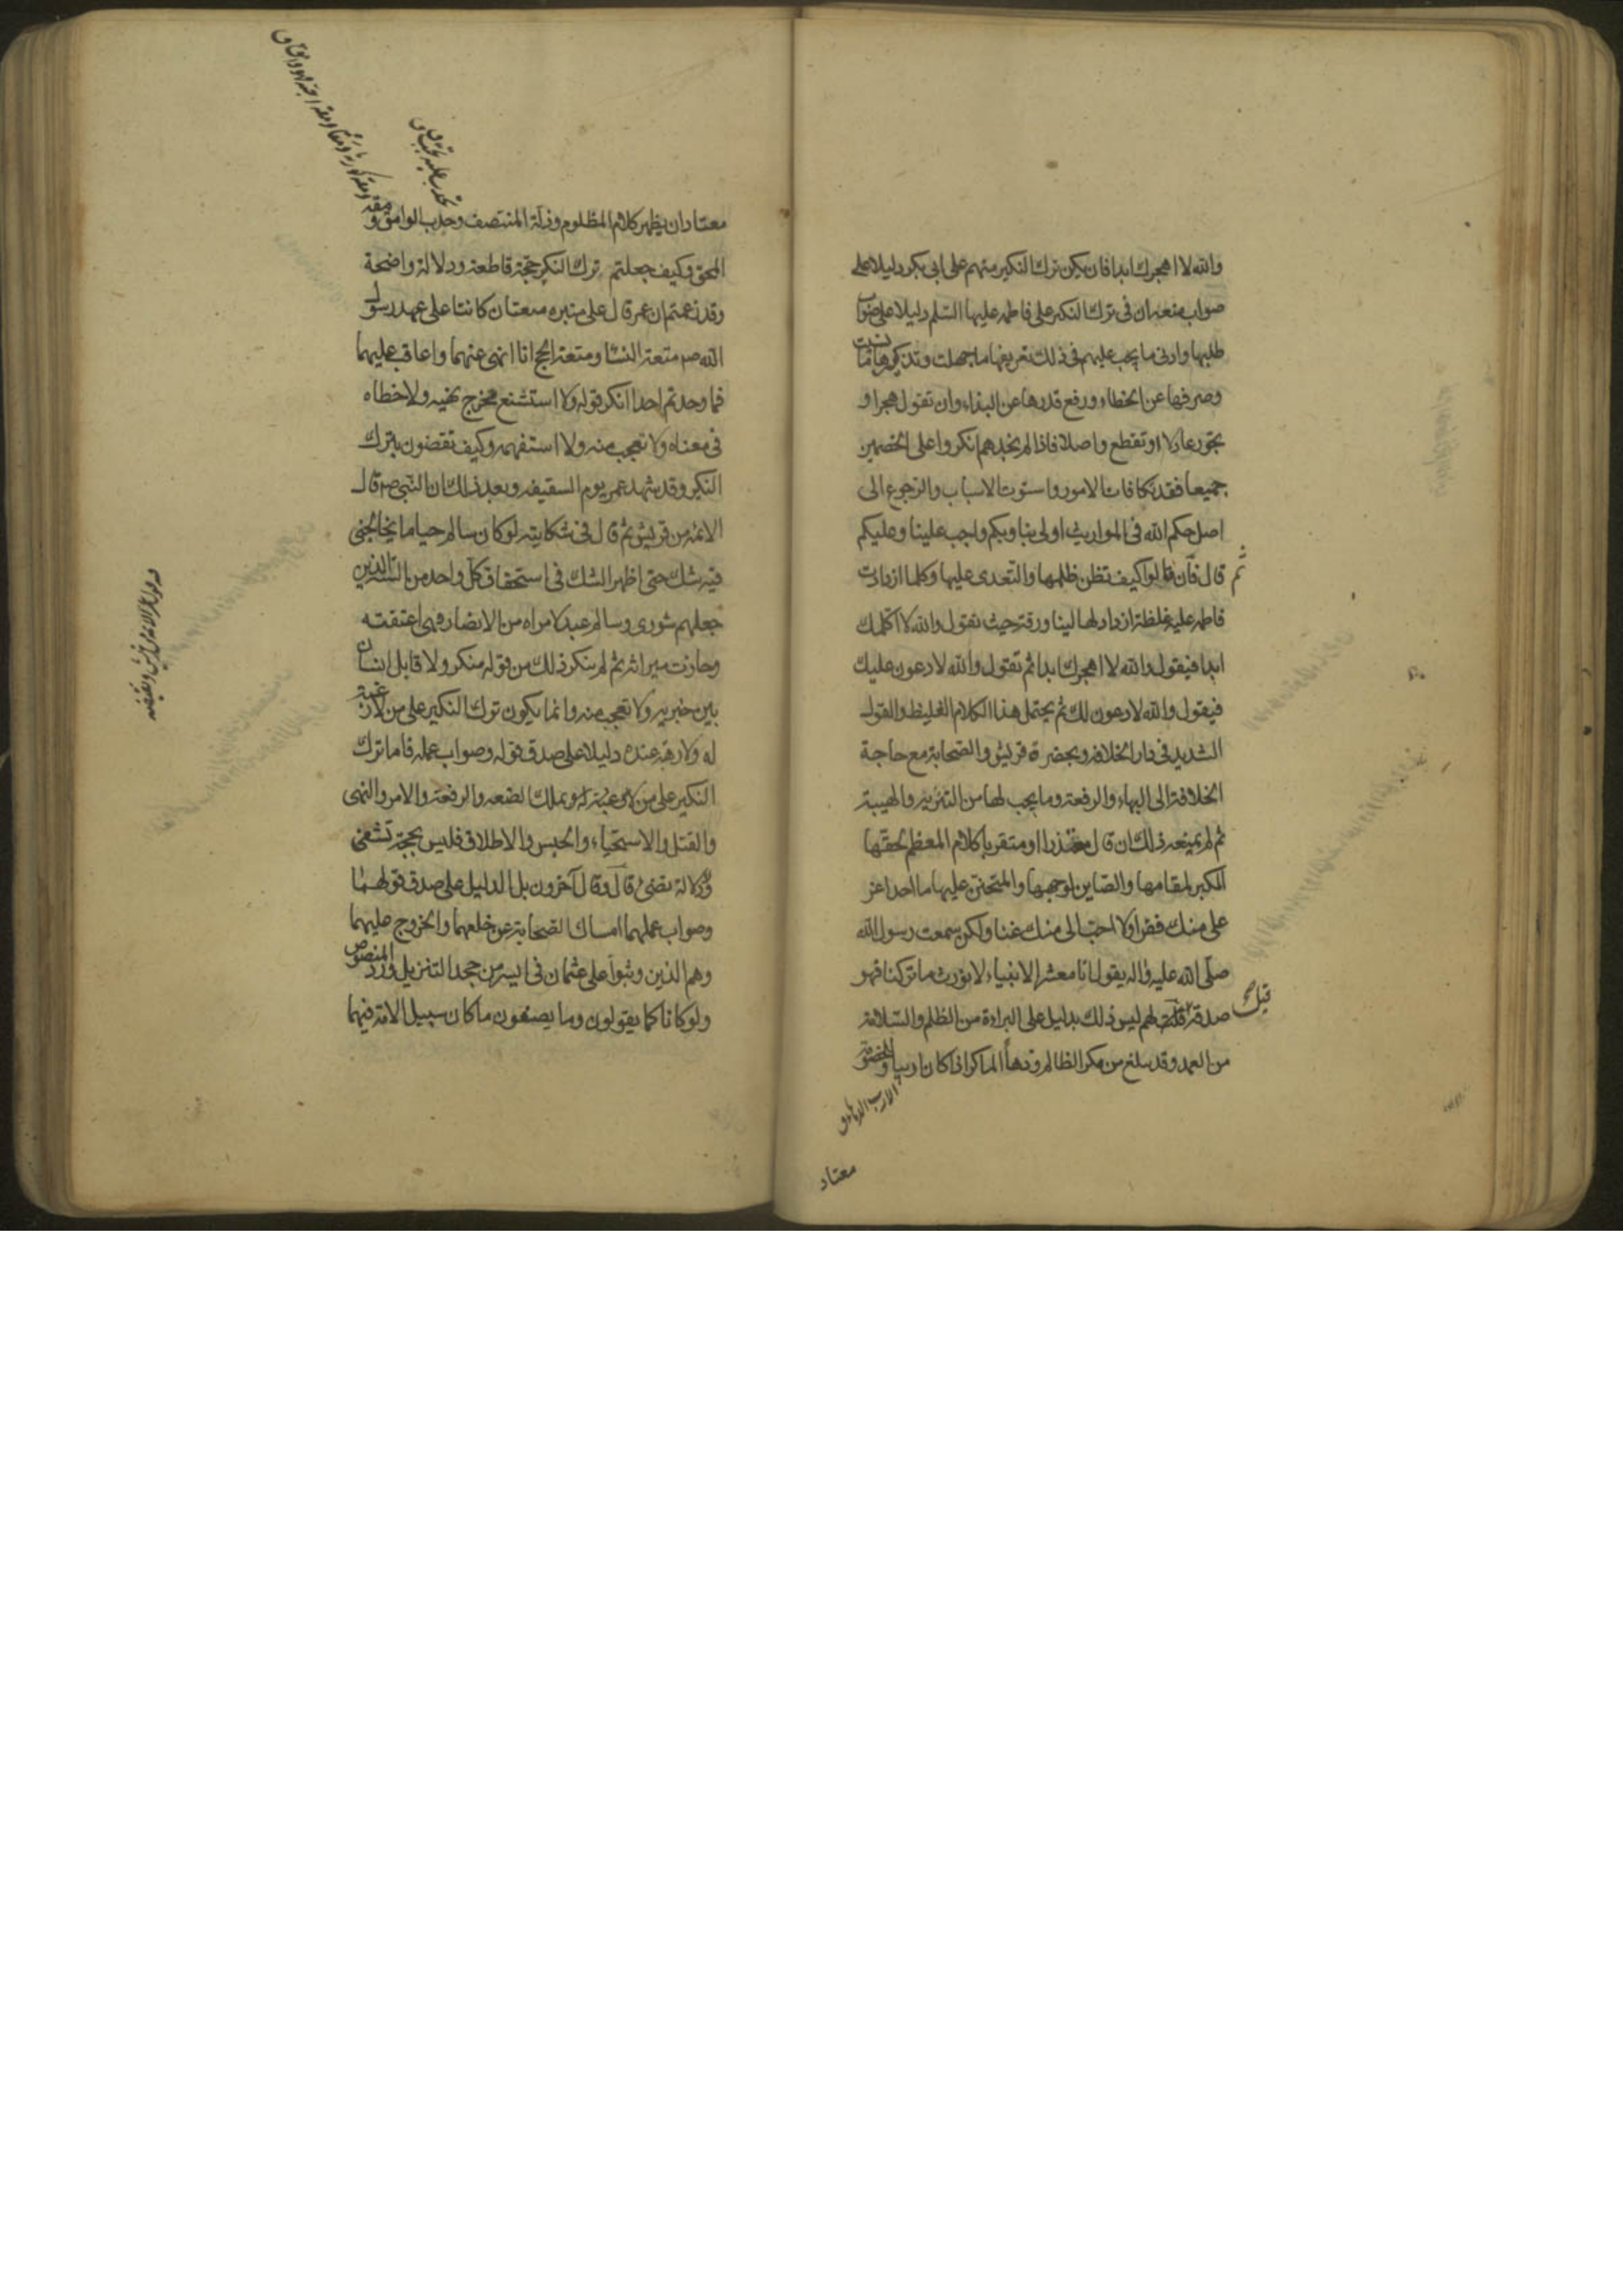 والله لا اهجرك ابدا فان يكن ترك النكير منهم على ابى بكر دليلا على
صواب منعه ان فى ترك النكير على فاطمه عليها السلم دليلا على صواب
طلبها وادنى ما يجب عليهم فى ذلك تعريفها ما جهلت وتذكيرها ما نسيت
وصرفها عن الخطاء ورفع قدرها عن البذاء وان تقول هجرا و
تجور عادلا او تقطع واصلا فاذا لم نجدهم انكروا على الخصمين
جميعا فقد تكافات الامور واستوت الاسباب والرجوع الى
اصل حكم الله فى المواريث اولى بنا وبكم واجب علينا وعليكم
ثم قال فان قالوا كيف تظن ظلمها والتعدى عليها وكلما ازدادت
فاطمه عليه غلظة ازداد لها لينا ورقة حيث تقول والله لا اكلمك
ابدا فيقول والله لا اهجرك ابدا ثم تقول والله لادعون عليك
فيقول والله لادعون لك ثم يحتمل هذا الكلام الغليظ والقول
الشديد فى دار الخلافة وبحضرة قريش والصحابة مع حاجة
الخلافة الى البهاء والرفعة وما يجب لها من التنزيه والهيبة
ثم لم يمنعه ذلك ان قال معتذرا او متقربا كلام المعظم لحقها
المكبر لمقامها والصاين لوجهها والمتحنن عليها ما احد اعز
على منك فقرا ولا احب الى منك غنا ولكن سمعت رسول الله
صلى الله عليه واله يقول انا معشر الانبياء لا نورث ما تركنا فهو
صدقة قلت لهم ليس ذلك بدليل على البراءة من الظلم والسلامة
قيل
من العمد وقد يبلغ من مكر الظالم ودهاء الماكر اذا كان اريبا وللخصومة
معتاد
معتادا ان يظهر كلام المظلوم وذلة المنتصف وحدب الوامق و مقة
المحق وكيف جعلتم ترك النكير حجة قاطعة ودلالة واضحة
وقد زعمتم ان عمر قال على منبره متعتان كانتا على عهد رسول
الله ص متعة النسا ومتعة الحج انا انهى عنهما واعاقب عليهما
فما وجدتم احدا انكر قوله ولا استشنع مخرج نهيه ولا خطاه
فى معناه ولا تعجب منه ولا استفهمه وكيف تقضون بترك
النكير وقد شهد عمر يوم السقيفه وبعد ذلك ان النبى ص قال
الائمة من قريش ثم قال فى شكايته لو كان سالم حيا ما يخالجنى
فيه شك حتى اظهر الشك فى استحقاق كل واحد من الستة الذين
جعلهم شورى وسالم عبد لامراه من الانصار وهى اعتقته
وحازت ميراثه ثم لم ينكر ذلك من قوله منكر ولا قابل انسان
بين خبريه ولا تعجب منه وانما يكون ترك النكير على من لا رغبة
له ولا رهبة عنده دليلا على صدق قوله وصواب عمله فاما ترك
النكير على من يملك الضعه والرفعة والامر والنهى
والقتل والاستحياء والحبس والاطلاق فليس بحجة تشفى
ولا دلالة تضئ قال وقال آخرون بل الدليل على صدق قولهما
وصواب عملهما امساك الصحابة عن خلعهما والخروج عليهما
وهم الذين وثبوا على عثمان فى ايسر من جحد التنزيل ورد المنصوص
ولو كانا كما يقولون وما يصفون ما كان سبيل الامة فيهما